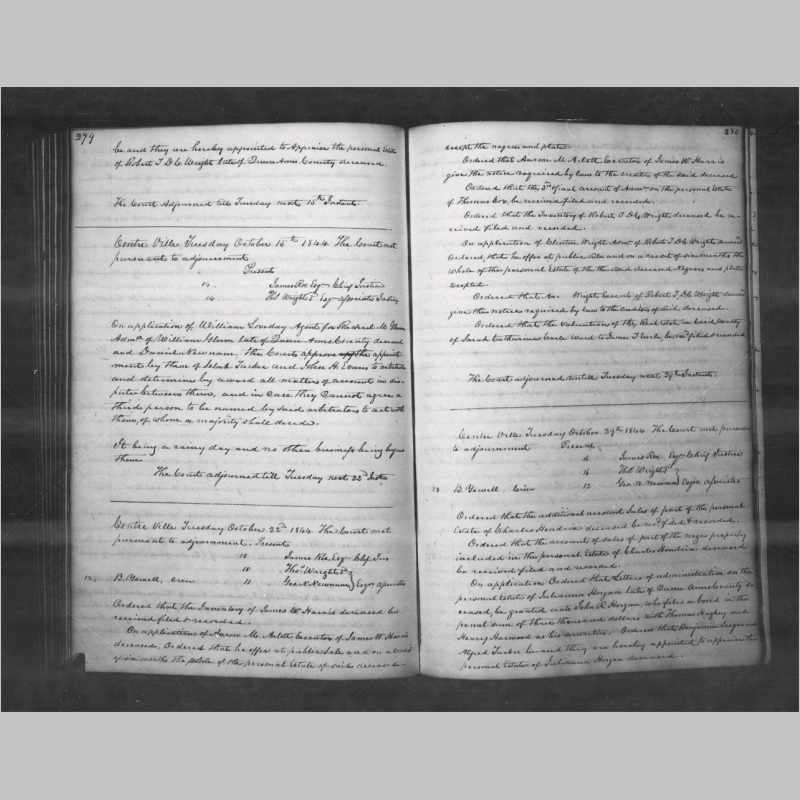 279
be and they are hereby appointed to Appraise the personal Estate
of Robert T D C Wright late of Queen Anns County deceased
The Court Adjourned till Tuesday next 15th Instant
Centre Ville Tuesday October 15th 1844 The Court met
pursuant to adjournment
Present
14 James Roe Esqr Chief Justice
14 Thos Wright 3d Esqr associate Justice
On application of William Loveday Agent for
Admr of William late of Queen Anns County deceased
and Daniel Newnam. The Court approve the appoint
ment by them of Tucker and John H. Evans to arbitrate
and determine by award all matters of account in dis
pute between them, and in case they cannot agree a
third person to be named by said arbitrators to act with
them, of whom a majority shall decide.
It being a rainy day and no other business being before
them
The Court adjourned till Tuesday next 22d Inst
Centre Ville Tuesday October 22d 1844 The Court met
pursuant to adjournment. Present
15 James Roe Esqr Chief Jus
15 Thos Wright 3d
12 B. Yewell, crier 11 Geo Newnam Esqrs associates
Ordered that the Inventory of James W Harris deceased be
received filed & recorded.
On application of Aaron M. Executor of James W Harris
deceased, Ordered that he offer at public sale and on a credit
of six months the whole of the personal Estate of said deceased
280
except the negroes and plate
Ordered that Aaron M. Executor of James W Harris
give the notice required by law to the creditors of the said deceased
Ordered that the 3d & final account of Admn on the personal Estate
of Thomas Cox be received filed and recorded.
Ordered that the Inventory of Robert T D C Wright deceased be re-
ceived filed and recorded.
On application of Clinton Wright Admr of Robert T D C Wright deceased
Ordered, that he offer at public sale and on a credit of six months the
whole of the personal Estate of the the said deceased Negroes and plate
excepted
Ordered that Wright of Robert T D C Wright deceased
give the notice required by law to the creditors of said deceased.
Ordered that the Valuation of the Real Estate in said County
of Sarah Catharine Ward to James T be recd filed & recorded
The Court adjourned until Tuesday next 29th Instant.
Centre Ville Tuesday October 29th 1844. The Court met pursuant
to adjournment Present
16 James Roe Esqr Chief Justice
16 Thos Wright 3d
13 B. Yewell Crier 12 Geo. Newnam Esqrs associates
Ordered that the additional account Sales of part of the personal
Estate of Charles Hendrix deceased be recd filed & recorded.
Ordered that the account of sales of part of the negro property
included in the personal Estate of Charles Hendrix deceased
be received filed and recorded.
On application Ordered that Letters of administration on the
personal Estate of Julianna Horgan late of Queen Anns County de
ceased, be granted unto John R. Horgan, who files a bond in the
penal sum of three thousand dollars with Thomas Hughey and
Henry Harwood as his securities. Ordered that Benjamin and
Alfred Tucker be and they are hereby appointed to appraise the
personal Estate of Julianna Horgan deceased.